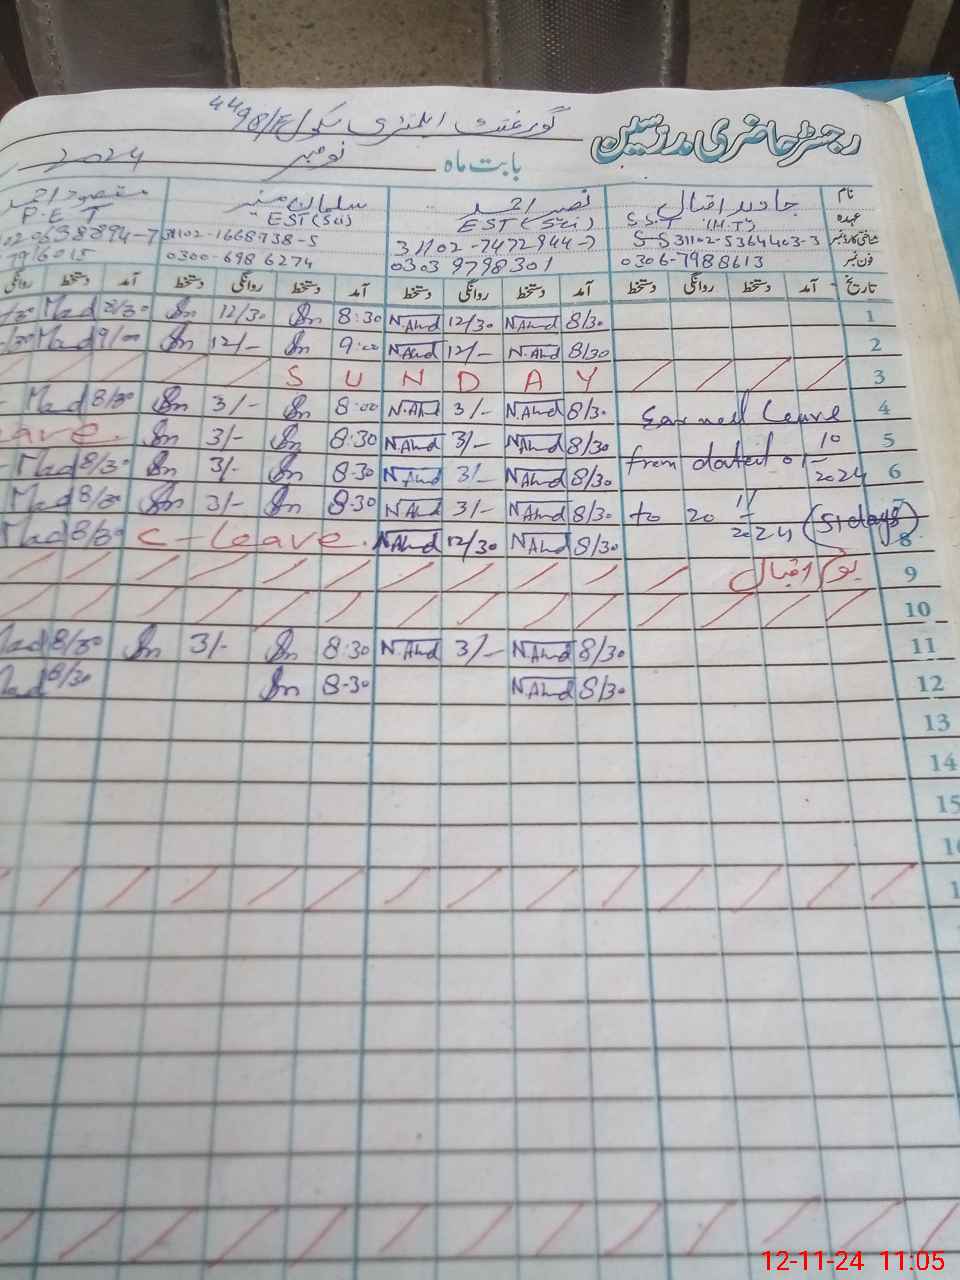 گورنمنٹ ایلیمنٹری سکول
رجسٹر حاضری مدرسین
بابت ماہ نومبر 2024
نام جاوید اقبال نصیر احمد سلمان منیر مقصود احمد
عہدہ S.S.T (H.T) EST (Sci) EST (Sci) P.E.T
شناختی کارڈ نمبر 31102-5364403-3 31102-7472944-7 31102-1668738-5
فون نمبر 0306-7988613 0303 9798301 0300-6986274
تاریخ آمد دستخط روانگی دستخط آمد دستخط روانگی دستخط آمد دستخط روانگی دستخط آمد دستخط روانگی
1 8/30 N.Ahd 12/30 N.Ahd 8:30 12/30 8/30
2 8/30 N.Ahd 12/- N.Ahd 9:00 12/- 9/00
3 SUNDAY
4 Earned Leave 8/30 N.Ahd 3/- N.Ahd 8:00 3/- 8/30
5 8/30 N.Ahd 3/- N.Ahd 8:30 3/-
6 from dated 01-10-2024 8/30 N.Ahd 3/- N.Ahd 8:30 3/- 8/30
7 to 20-11-2024 (51 days) 8/30 N.Ahd 3/- N.Ahd 8:30 3/- 8/30
8 8/30 N.Ahd 12/30 N.Ahd C-Leave. 8/30
9 یوم اقبال
10
11 8/30 N.Ahd 3/- N.Ahd 8:30 3/- 8/30
12 8/30 N.Ahd 8-30 8/30
13
14
15
12-11-24 11:05